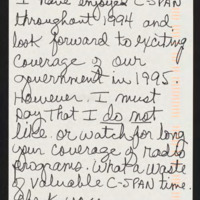 I have enjoyed C-SPAN
throughout 1994 and
look forward to exciting
coverage of our
government in 1995.
However, I must
say that I do not
like or watch for long
your coverage of radio
programs. What a waste
of valuable C-SPAN time.